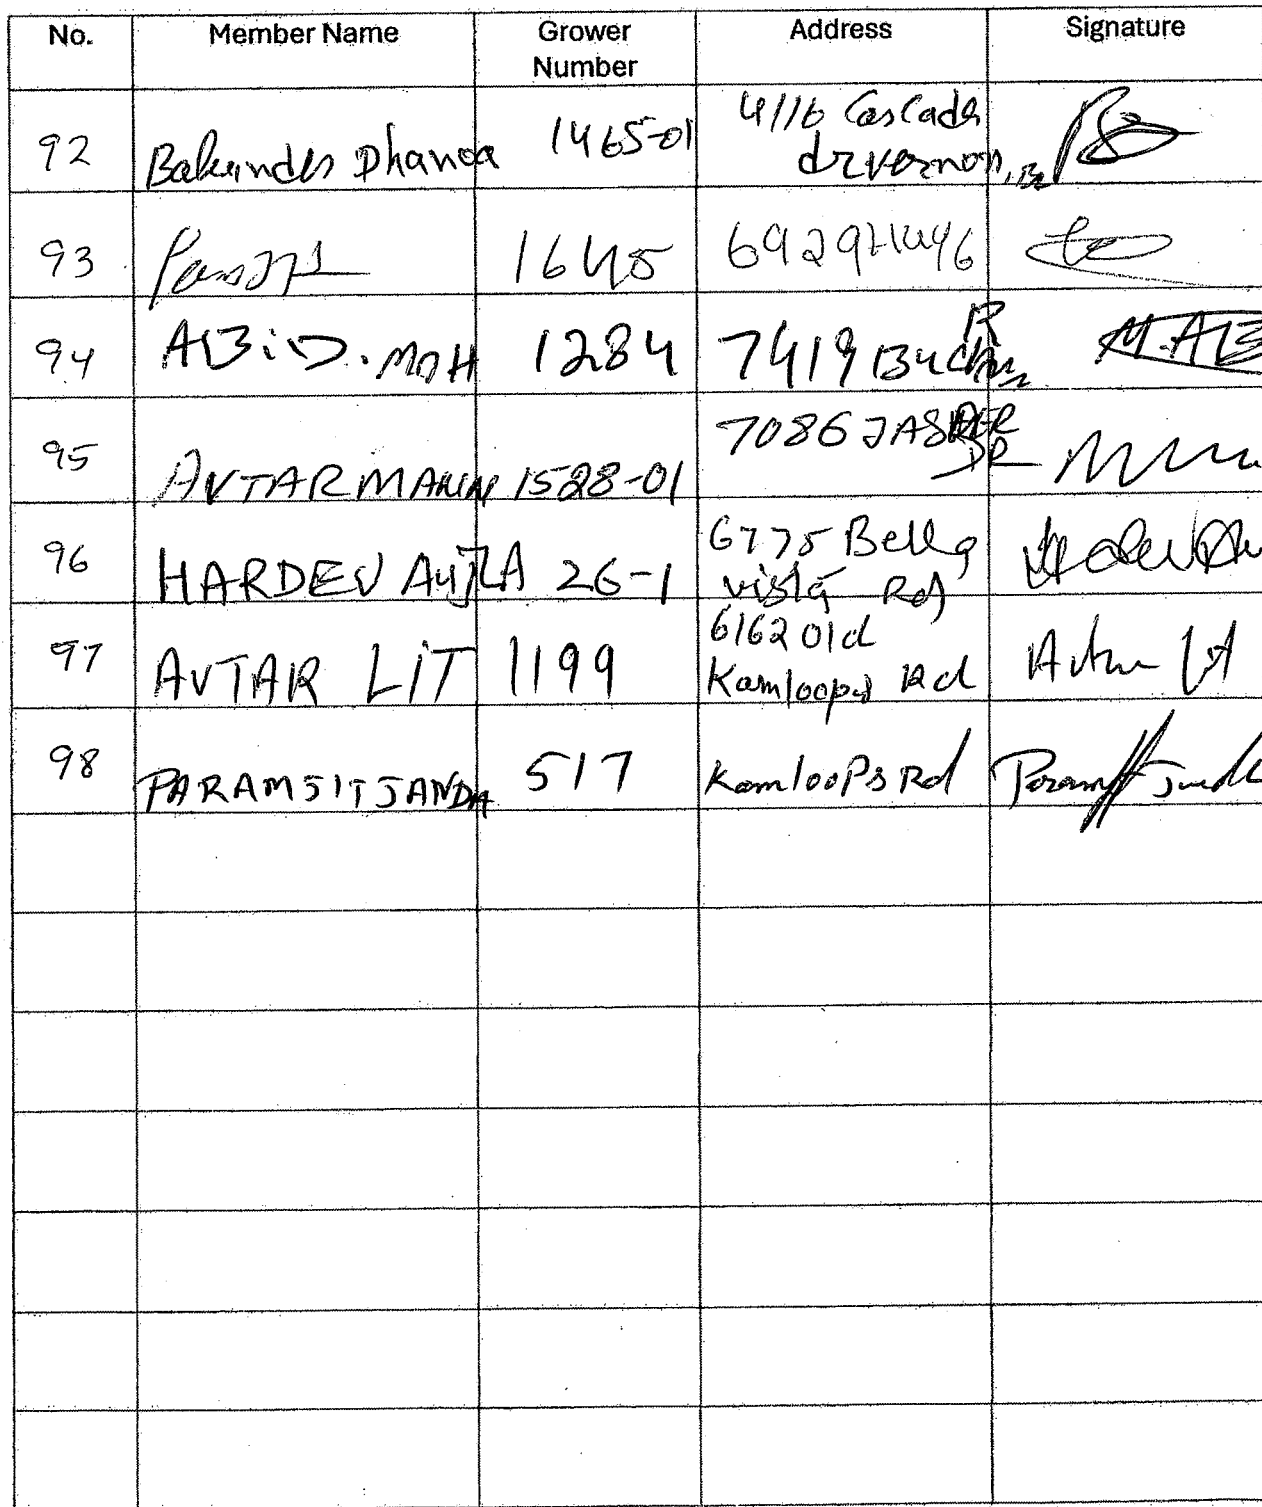 No. Member Name Grower Number Address Signature
92 Dhanoa 1465-01 4116 Cascade dr vernon, BC
93 1645
94 ABiD. MOH 1284 7419 M.AB
95 AVTAR MANN 1528-01 7086 JASPER DR
96 HARDEV AUJLA 26-1 6775 Bella vista Rd
97 AVTAR LiT 1199 6162 Old Kamloops Rd Avtar Lit
98 PARAMJIT JANDA 517 Kamloops Rd